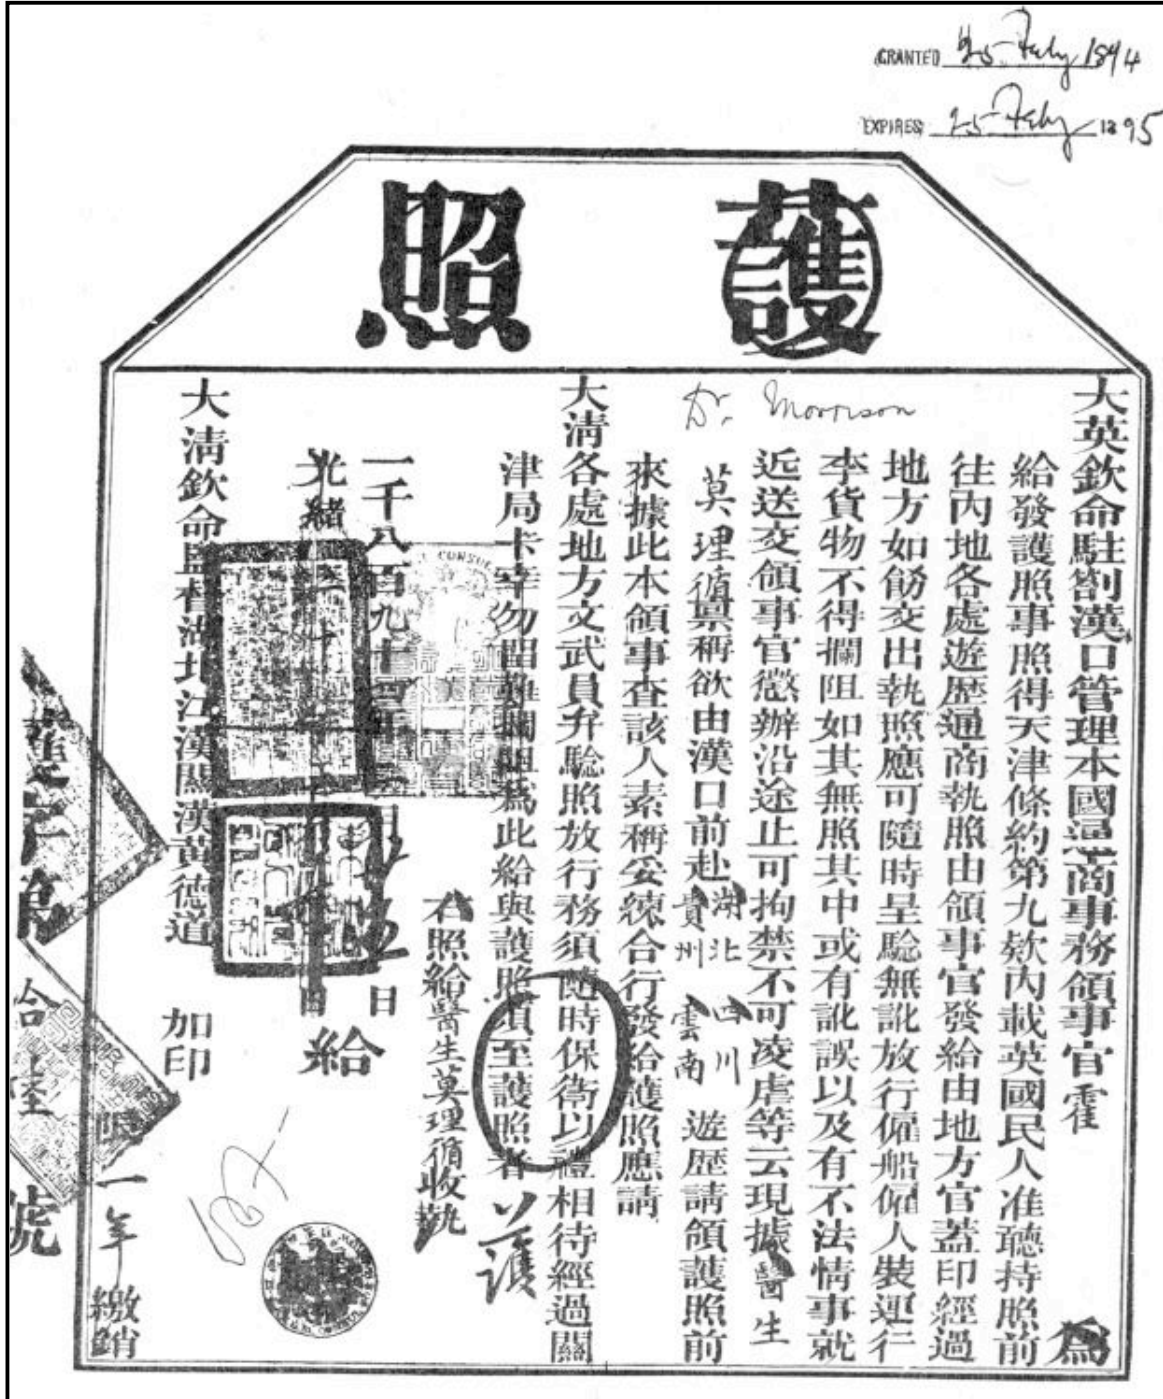 GRANTED 25 Feby 1894
EXPIRES 25 Feby 1895
護照
大英欽命駐劄漢口管理本國通商事務領事官霍 爲
給發護照事照得天津條約第九欵內載英國民人准聽持照前
往內地各處遊歷通商執照由領事官發給由地方官蓋印經過
地方如飭交出執照應可隨時呈驗無訛放行僱船僱人裝運行
李貨物不得攔阻如其無照其中或有訛誤以及有不法情事就
近送交領事官懲辦沿途止可拘禁不可凌虐等云現據醫生
Dr. Morrison
莫理循稟稱欲由漢口前赴湖北四川貴州雲南遊歷請領護照前
來據此本領事查該人素稱妥練合行發給護照應請
大清各處地方文武員弁驗照放行務須隨時保衛以禮相待經過關
津局卡幸勿留難攔阻爲此給與護照須至護照者
護
右照給醫生莫理循收執
一千八百九十四年二月 日
光緒二十 給
大清欽命監督湖北江漢關漢黃德道 加印
限一年繳銷
號